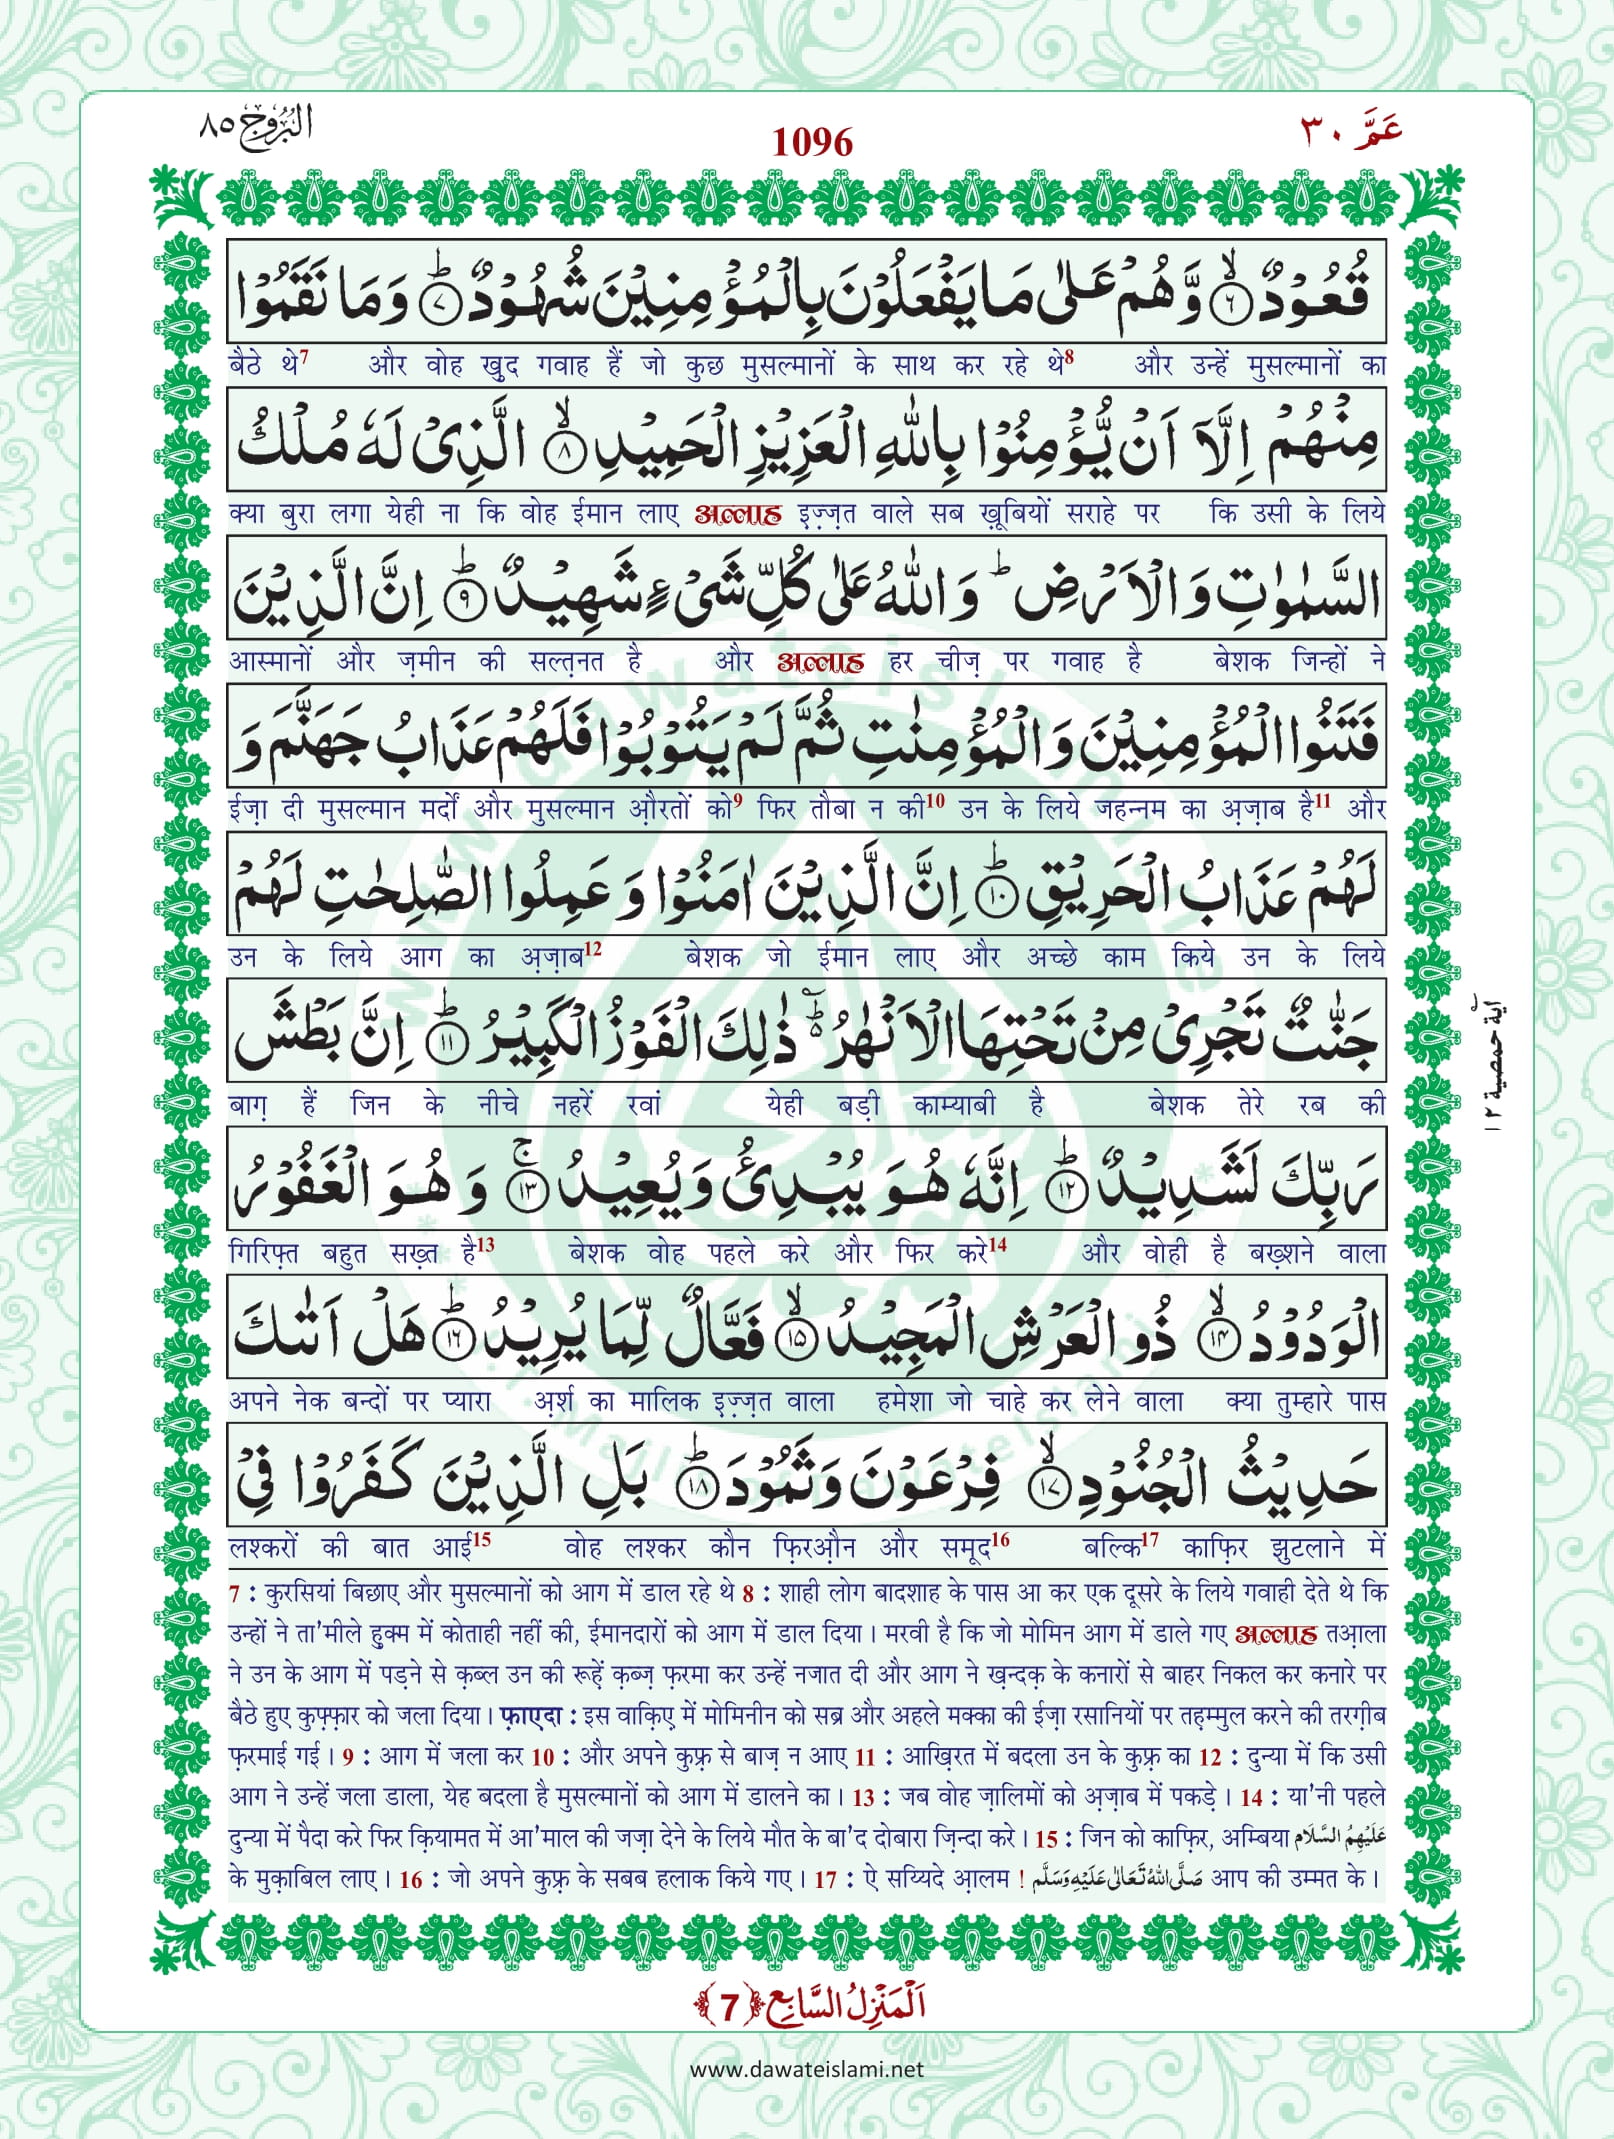 البروج ٨٥
1096
عَمَّ ٣٠
قُعُوْدٌ ۙ﴿۶﴾ وَّ هُمْ عَلٰى مَا یَفْعَلُوْنَ بِالْمُؤْمِنِیْنَ شُهُوْدٌ ؕ﴿۷﴾ وَ مَا نَقَمُوْا
बैठे थे7 और वोह खुद गवाह हैं जो कुछ मुसल्मानों के साथ कर रहे थे8 और उन्हें मुसल्मानों का
مِنْهُمْ اِلَّاۤ اَنْ یُّؤْمِنُوْا بِاللّٰهِ الْعَزِیْزِ الْحَمِیْدِ ۙ﴿۸﴾ الَّذِیْ لَهٗ مُلْكُ
क्या बुरा लगा येही ना कि वोह ईमान लाए अल्लाह इज़्ज़त वाले सब ख़ूबियों सराहे पर कि उसी के लिये
السَّمٰوٰتِ وَ الْاَرْضِ ؕ وَ اللّٰهُ عَلٰى كُلِّ شَیْءٍ شَهِیْدٌ ؕ﴿۹﴾ اِنَّ الَّذِیْنَ
आस्मानों और ज़मीन की सल्तनत है और अल्लाह हर चीज़ पर गवाह है बेशक जिन्हों ने
فَتَنُوا الْمُؤْمِنِیْنَ وَ الْمُؤْمِنٰتِ ثُمَّ لَمْ یَتُوْبُوْا فَلَهُمْ عَذَابُ جَهَنَّمَ وَ
ईज़ा दी मुसल्मान मर्दों और मुसल्मान औ़रतों को9 फिर तौबा न की10 उन के लिये जहन्नम का अ़ज़ाब है11 और
لَهُمْ عَذَابُ الْحَرِیْقِ ؕ﴿۱۰﴾ اِنَّ الَّذِیْنَ اٰمَنُوْا وَ عَمِلُوا الصّٰلِحٰتِ لَهُمْ
उन के लिये आग का अ़ज़ाब12 बेशक जो ईमान लाए और अच्छे काम किये उन के लिये
جَنّٰتٌ تَجْرِیْ مِنْ تَحْتِهَا الْاَنْهٰرُ ؕ۬ ذٰلِكَ الْفَوْزُ الْكَبِیْرُ ؕ﴿۱۱﴾ اِنَّ بَطْشَ
آية حمصية ١٢
बाग़ हैं जिन के नीचे नहरें रवां येही बड़ी काम्याबी है बेशक तेरे रब की
رَبِّكَ لَشَدِیْدٌ ؕ﴿۱۲﴾ اِنَّهٗ هُوَ یُبْدِئُ وَ یُعِیْدُ ۚ﴿۱۳﴾ وَ هُوَ الْغَفُوْرُ
गिरिफ़्त बहुत सख़्त है13 बेशक वोह पहले करे और फिर करे14 और वोही है बख़्शने वाला
الْوَدُوْدُ ۙ﴿۱۴﴾ ذُو الْعَرْشِ الْمَجِیْدُ ۙ﴿۱۵﴾ فَعَّالٌ لِّمَا یُرِیْدُ ؕ﴿۱۶﴾ هَلْ اَتٰىكَ
अपने नेक बन्दों पर प्यारा अ़र्श का मालिक इज़्ज़त वाला हमेशा जो चाहे कर लेने वाला क्या तुम्हारे पास
حَدِیْثُ الْجُنُوْدِ ۙ﴿۱۷﴾ فِرْعَوْنَ وَ ثَمُوْدَ ؕ﴿۱۸﴾ بَلِ الَّذِیْنَ كَفَرُوْا فِیْ
लश्करों की बात आई15 वोह लश्कर कौन फ़िरऔ़न और समूद16 बल्कि17 काफ़िर झुटलाने में
7 : कुरसियां बिछाए और मुसल्मानों को आग में डाल रहे थे 8 : शाही लोग बादशाह के पास आ कर एक दूसरे के लिये गवाही देते थे कि
उन्हों ने ता'मीले हुक्म में कोताही नहीं की, ईमानदारों को आग में डाल दिया। मरवी है कि जो मोमिन आग में डाले गए अल्लाह तआ़ला
ने उन के आग में पड़ने से क़ब्ल उन की रूहें क़ब्ज़ फ़रमा कर उन्हें नजात दी और आग ने ख़न्दक़ के कनारों से बाहर निकल कर कनारे पर
बैठे हुए कुफ़्फ़ार को जला दिया। फ़ाएदा : इस वाक़िए में मोमिनीन को सब्र और अहले मक्का की ईज़ा रसानियों पर तह़म्मुल करने की तरग़ीब
फ़रमाई गई। 9 : आग में जला कर 10 : और अपने कुफ़्र से बाज़ न आए 11 : आख़िरत में बदला उन के कुफ़्र का 12 : दुन्या में कि उसी
आग ने उन्हें जला डाला, येह बदला है मुसल्मानों को आग में डालने का। 13 : जब वोह ज़ालिमों को अ़ज़ाब में पकड़े। 14 : या'नी पहले
दुन्या में पैदा करे फिर क़ियामत में आ'माल की जज़ा देने के लिये मौत के बा'द दोबारा ज़िन्दा करे। 15 : जिन को काफ़िर, अम्बिया عَلَيْهِمُ السَّلَام
के मुक़ाबिल लाए। 16 : जो अपने कुफ़्र के सबब हलाक किये गए। 17 : ऐ सय्यिदे आ़लम ! صَلَّى اللهُ تَعَالٰى عَلَيْهِ وَسَلَّم आप की उम्मत के।
اَلْمَنْزِلُ السَّابِع ﴿7﴾
www.dawateislami.net